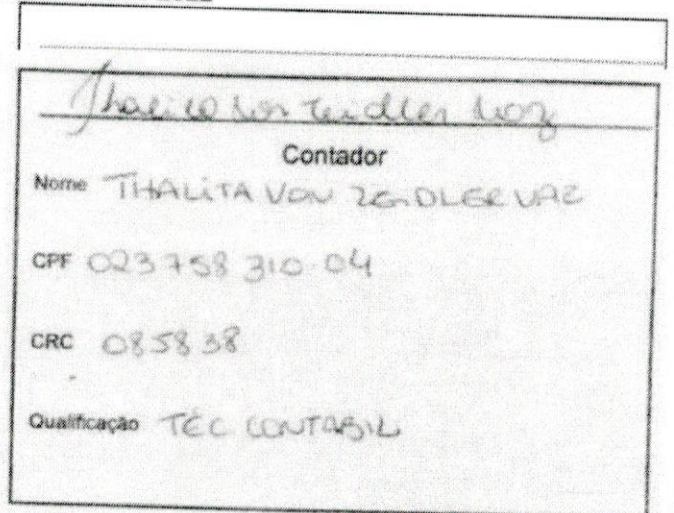 Thalita Von Zeidler Vaz
Contador
Nome THALITA VON ZEIDLER VAZ
CPF 023 758 310-04
CRC 085838
Qualificação TÉC CONTABIL